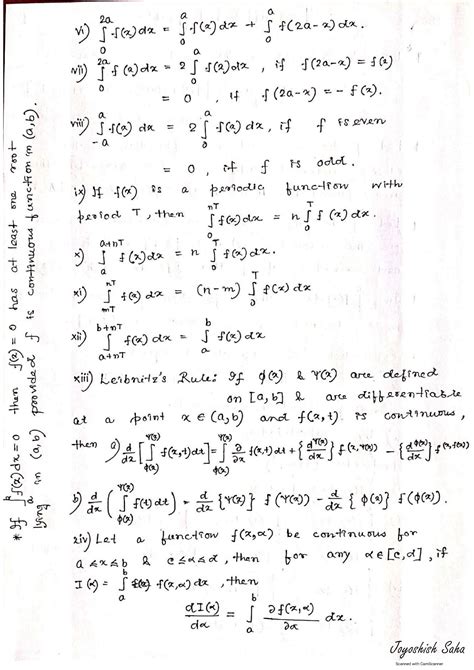 vi) ∫₀^{2a} f(x) dx = ∫₀^{a} f(x) dx + ∫₀^{a} f(2a-x) dx.
vii) ∫₀^{2a} f(x) dx = 2 ∫₀^{a} f(x) dx, if f(2a-x) = f(x)
= 0, if f(2a-x) = - f(x).
viii) ∫_{-a}^{a} f(x) dx = 2 ∫₀^{a} f(x) dx, if f is even
= 0, if f is odd.
ix) If f(x) is a periodic function with
period T, then ∫₀^{nT} f(x) dx = n ∫₀^{T} f(x) dx.
x) ∫_{a}^{a+nT} f(x) dx = n ∫₀^{T} f(x) dx.
xi) ∫_{mT}^{nT} f(x) dx = (n-m) ∫₀^{T} f(x) dx
xii) ∫_{a+nT}^{b+nT} f(x) dx = ∫_{a}^{b} f(x) dx
xiii) Leibnitz's Rule: If φ(x) & ψ(x) are defined
on [a,b] & are differentiable
at a point x ∈ (a,b) and f(x,t) is continuous,
then a) d/dx [∫_{φ(x)}^{ψ(x)} f(x,t) dt] = ∫_{φ(x)}^{ψ(x)} ∂/∂x f(x,t) dt + {dψ(x)/dx} f(x,ψ(x)) - {dφ(x)/dx} f(x,φ(x))
b) d/dx (∫_{φ(x)}^{ψ(x)} f(t) dt) = d/dx {ψ(x)} f(ψ(x)) - d/dx {φ(x)} f(φ(x)).
xiv) Let a function f(x,α) be continuous for
a ≤ x ≤ b & c ≤ α ≤ d, then for any α ∈ [c,d], if
I(α) = ∫_{a}^{b} f(x,α) dx, then
dI(α)/dα = ∫_{a}^{b} ∂f(x,α)/∂α dx.
* If ∫_{a}^{b} f(x) dx = 0 then f(x) = 0 has at least one root
lying in (a,b) provided f is continuous function in (a,b).
Joyoshish Saha
Scanned with CamScanner